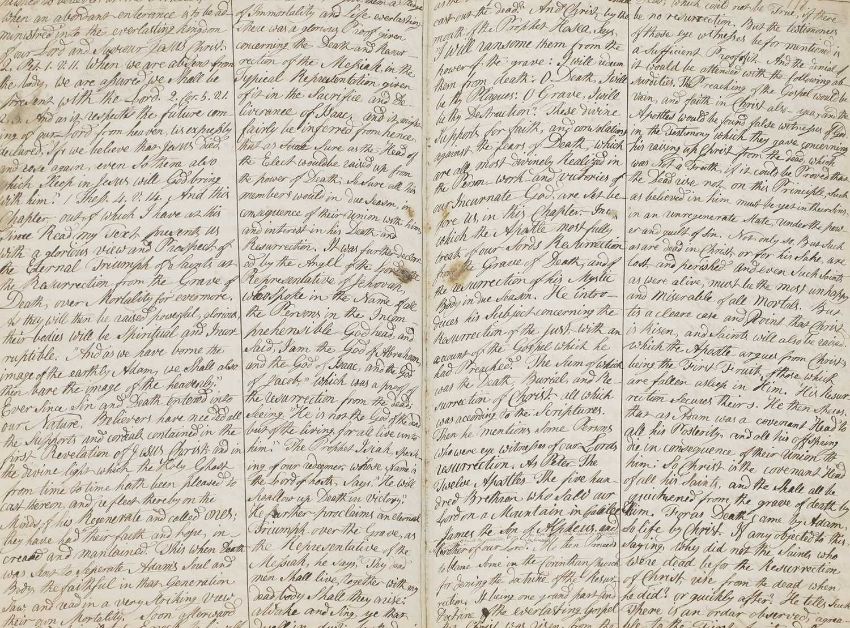 when an abundant enterance is to be ad-
ministred into the everlasting kingdom
of our Lord and Saviour Jesus Christ.
2. Pet. 1. v. 11. When we are absent from
the body, we are assured we shall be
present with the Lord. 2. Cor. 5.
And as it respects the future com-
ing of our Lord form heaven, is expressly
declared, "If we believe that Jesus died
and rose again, even so them also
which Sleep in Jesus will God bring
with him." Thess. 4. v. 14. And this
Chapter, out of which I have at this
Time Read my text presents us
with a glorious view and Prospect of
the Eternal Triumph of a Saints at
the Resurrection from the Grave of
Death, over Mortality for evermore.
As they will then be raised powerful, glorious,
their bodies will be Spiritual and Incor-
ruptible. And as we have borne the
image of the earthly Adam, we shall also
then bare the image of the heavenly.
Ever Since Sin and Death entered into
our Nature. Believers have needed all
the Supports and contained in the
first Revelation of Jesus Christ, and in
the divine light which the Holy Ghost
from time to time hath been pleased to
cast thereon, and reflect thereby on the
Minds of his Regenerate and called ones;
they have had their faith and hope, in-
creased and mantained. This when Death
was Sent to Seperate Adams Soul and
Body, the faithful in that Generation
Saw and read in a very Striking view
their own Mortality. Soon afterward
of Immortality and Life everlasting
There was a glorious Proof given
concerning the Death and Resur-
rection of the Messiah, in the
Typical Representation, given
of it in the Sacrifice and De-
liverance of Isaac, and it might
fairly be inferred from hence
that as Sure as the Head of
the Elect would be raised up from
the power of Death, So Sure all his
members would in due Season, in
consequence of their Union with him
and interest in his Death and
Resurrection. It was further declar-
ed by the Angel of the Lord, the
Representative of Jehovah,
who Spoke in the Name of all
the Persons in the Incom-
prehensible Godhead, and
Said, I am the God of Abraham
and the God of Isaac, and the God
of Jacob" which was a proof of
the resurrection from the dead,
Seeing "He is not the God of the dead
but of the living for all live unto
him." The Prophet Isiah Speak-
ing of our redeemer, whose Name is
the Lord of hosts, Says, "He will
Swallow up Death in victory;"
He further proclaims an eternal
Triumph over the Grave, as
the Representative of the
Messiah, he Says, Thy dead
men Shall live, together with my
dead body Shall they arise:
Awake and Sing, ye that
dwell in dust:
cast out the dead." And Christ, by the
mouth of the Prophet Hosea, Says,
"I Will ransome them from the
power of the grave: I will redeem
them from death: O Death, I will
be thy Plagues: O Grave, I will
be thy Destruction." These divine
Supports for faith, and consolations
against the fears of Death, which
are all most divinely Realized in
the Person, work and victories of
our Incarnate God, are Set be-
fore us in this Chapter. In
which the Apostle most fully
treats of our Lords Resurrection
from the Grave of Death, and of
the resurrection of his Mystic
Body in due Season. He intro-
duces his Subject concerning the
Resurrection of the just with an
account of the Gospel which he
had Preached. The Sum of which
was the Death, Burial, and Re-
surrection of Christ, all which
was according to the Scriptures.
Then he mentions Some Persons
who were eye witnesses of our Lords
resurrection. As Peter. The
Twelve Apostles. The five hun-
dred Brethren who Said our
Lord on a Mountain in Galilee
James the Son of Alpheus, and
Brother of our Lord. He then Proceeds
to blame Some in the Corinthian Church
for denying the doctrine of the Resur-
rection. It being one grand part and
Doctrine of the everlasting gospel
that Christ was risen from the
which could not be True, if there
be no resurrection. But the testimonies
of those eye witnesses before mentioned is
a Sufficient Proof of it. And the denial of
it would be attended with the following ab-
surdities. The Preaching of the Gospel would be
vain, and faith in Christ also, yea, and the
Apostles would be found false witnesses of God
in the testimony which they gave concerning
his raising up Christ from the dead, which
was not a Truth, if it could be Proved that
the dead rise not. on this Principle, Such
as believed in him must be yet in their Sins,
in an unregenerate State, under the pow-
er and guilt of Sin. Not only So, But Such
as are dead in Christ, or for his Sake, are
lost, and perished. And even Such Saints
as were alive, must be the most unhappy
and Miserable of all Mortals. But
tis a cleare case and Point that Christ
is Risen, and Saints will also be raised.
which the Apostle argues from Christs
being the First Fruits of those which
are fallen asleep in Him. His Resur-
rection Secures theirs. He then Shews,
that as Adam was a covenant Head to
all his Posterity, and all his offspring
die in consequence of their Union to
him: So Christ is the covenant Head
of all his Saints, and the Shall all be
quickened from the grave of death by
him. For as Death came by Adam,
So life by Christ. If any objected to this
Saying Why did not the Saints who
were dead before the Resurrection
of Christ rise from the dead when
he did? or quickly after? He tells Such
There is an order observed, agrea-